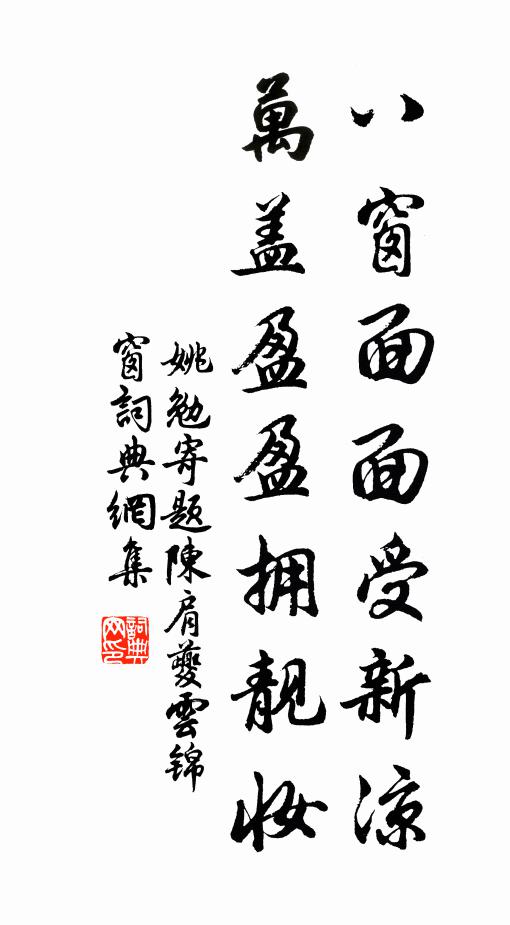 八窗面面受新涼
萬盖盈盈拥靚妝
姚勉寄题陳肩夔雲锦
窗詞典網集
詞典
网印